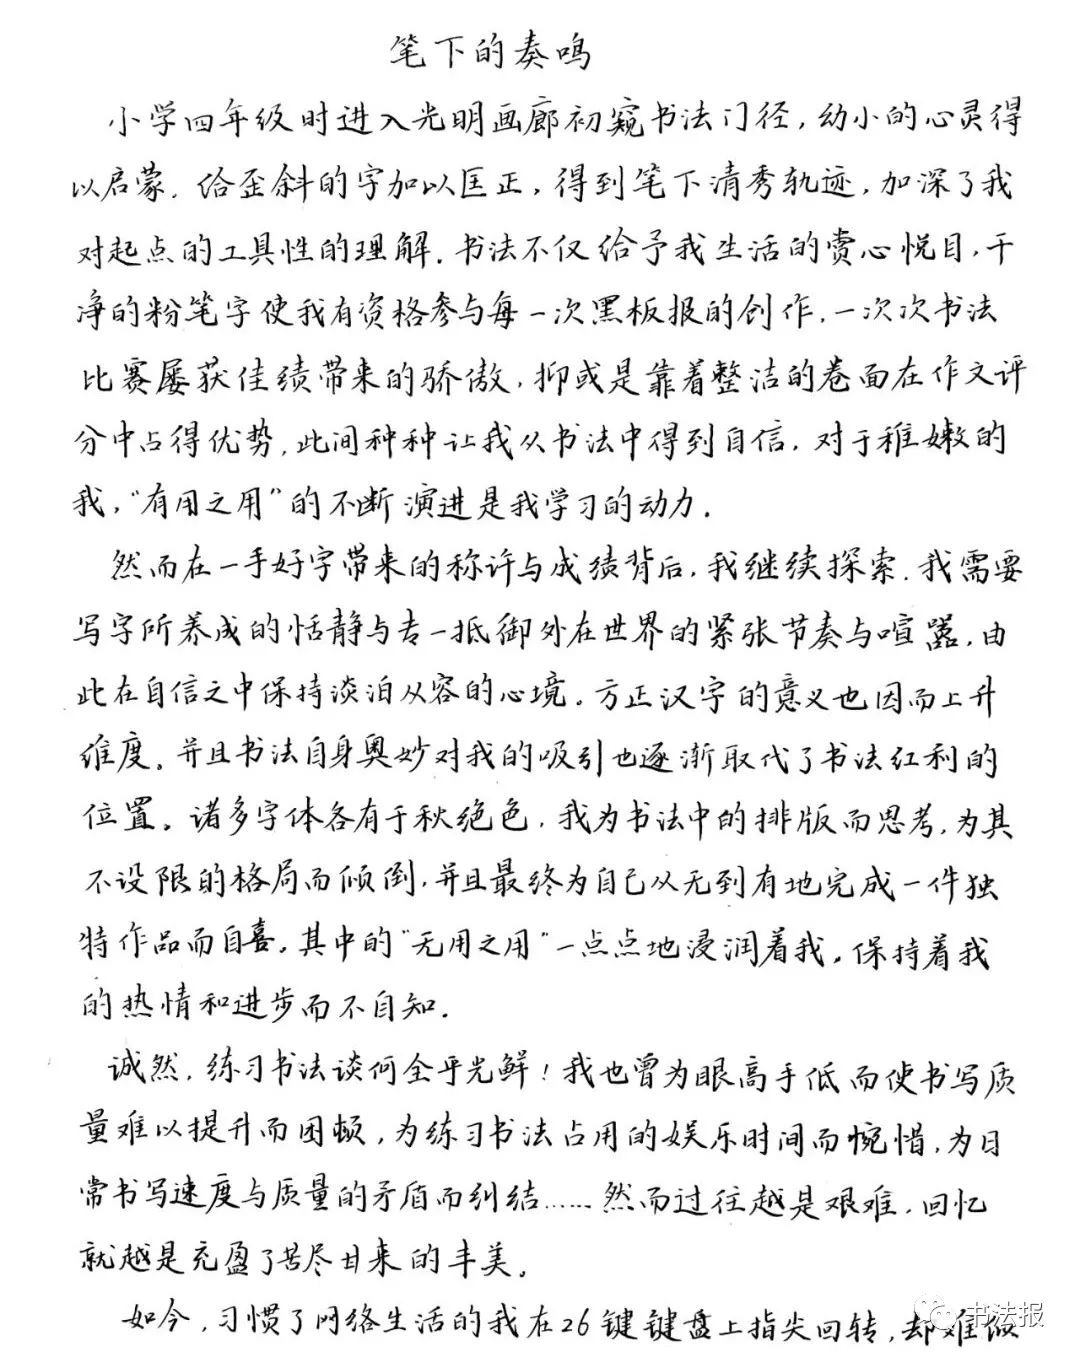 笔下的奏鸣
小学四年级时进入光明画廊初窥书法门径，幼小的心灵得
以启蒙．给歪斜的字加以匡正，得到笔下清秀轨迹，加深了我
对起点的工具性的理解．书法不仅给予我生活的赏心悦目，干
净的粉笔字使我有资格参与每一次黑板报的创作．一次次书法
比赛屡获佳绩带来的骄傲，抑或是靠着整洁的卷面在作文评
分中占得优势，此间种种让我从书法中得到自信．对于稚嫩的
我，“有用之用”的不断演进是我学习的动力．
然而在一手好字带来的称许与成绩背后，我继续探索．我需要
写字所养成的恬静与专一抵御外在世界的紧张节奏与喧嚣，由
此在自信之中保持淡泊从容的心境。方正汉字的意义也因而上升
维度。并且书法自身奥妙对我的吸引也逐渐取代了书法红利的
位置。诸多字体各有千秋绝色．我为书法中的排版而思考，为其
不设限的格局而倾倒，并且最终为自己从无到有地完成一件独
特作品而自喜。其中的“无用之用”一点点地浸润着我。保持着我
的热情和进步而不自知．
诚然，练习书法谈何全乎光鲜！我也曾为眼高手低而使书写质
量难以提升而困顿，为练习书法占用的娱乐时间而惋惜，为日
常书写速度与质量的矛盾而纠结……然而过往越是艰难，回忆
就越是充盈了苦尽甘来的丰美。
如今，习惯了网络生活的我在26键键盘上指尖回转，却难似
书法报